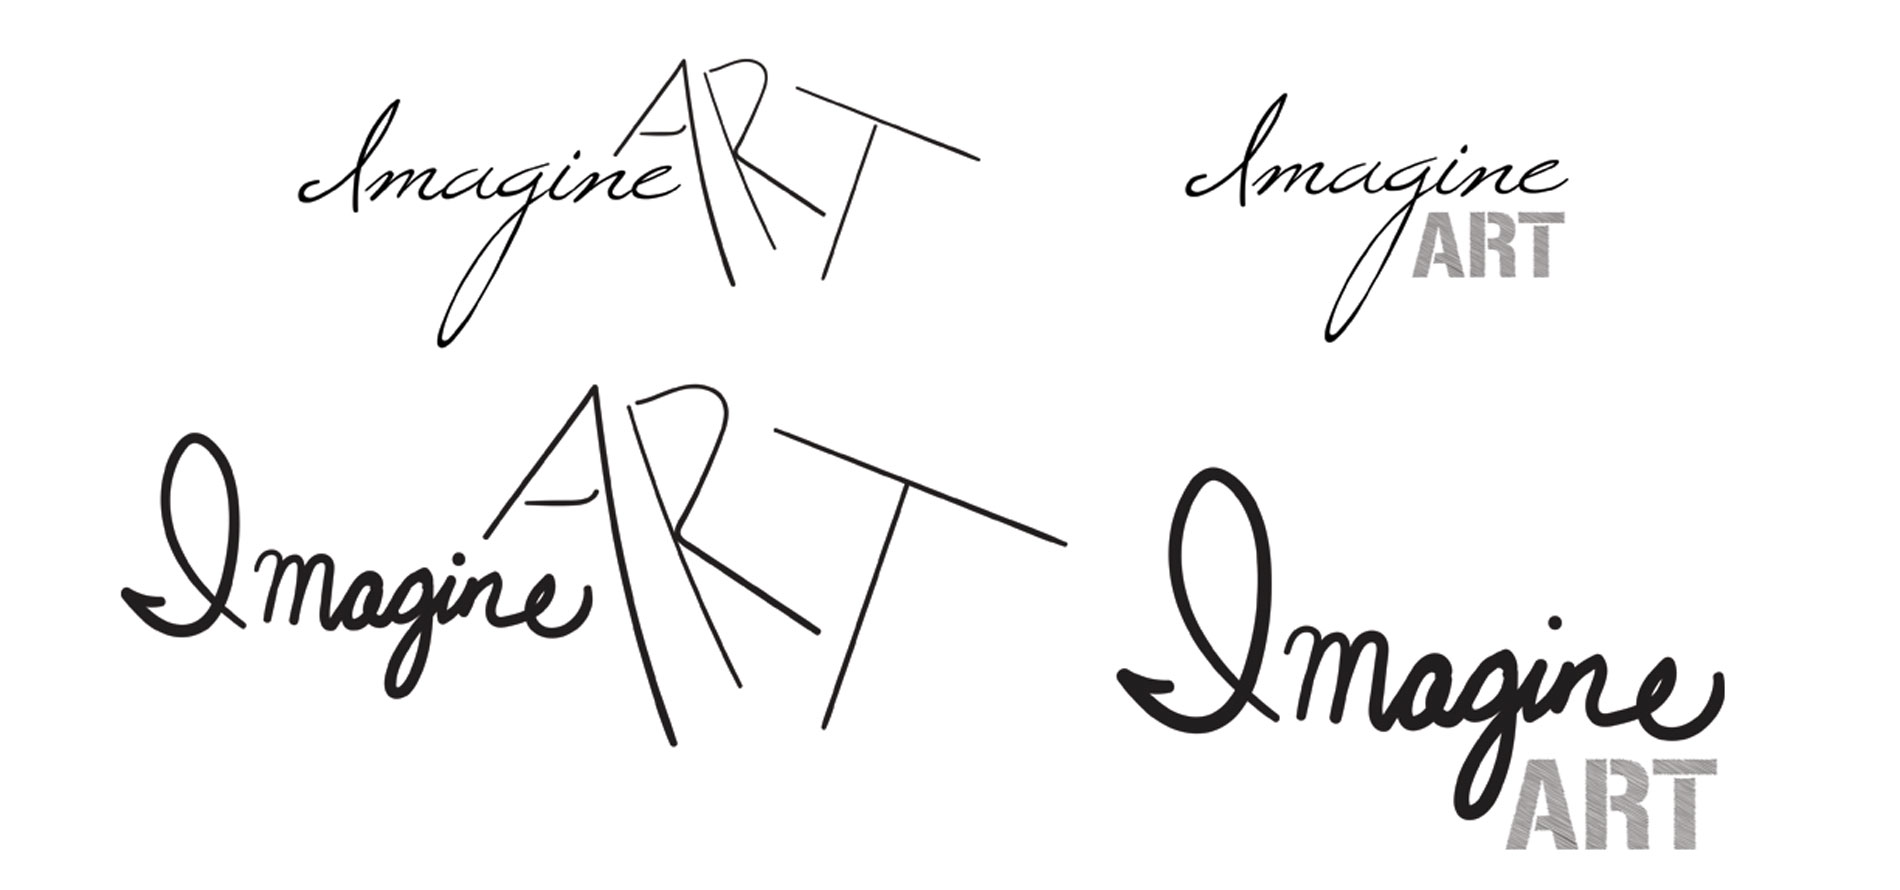 Imagine ART
Imagine
ART
Imagine ART
Imagine
ART